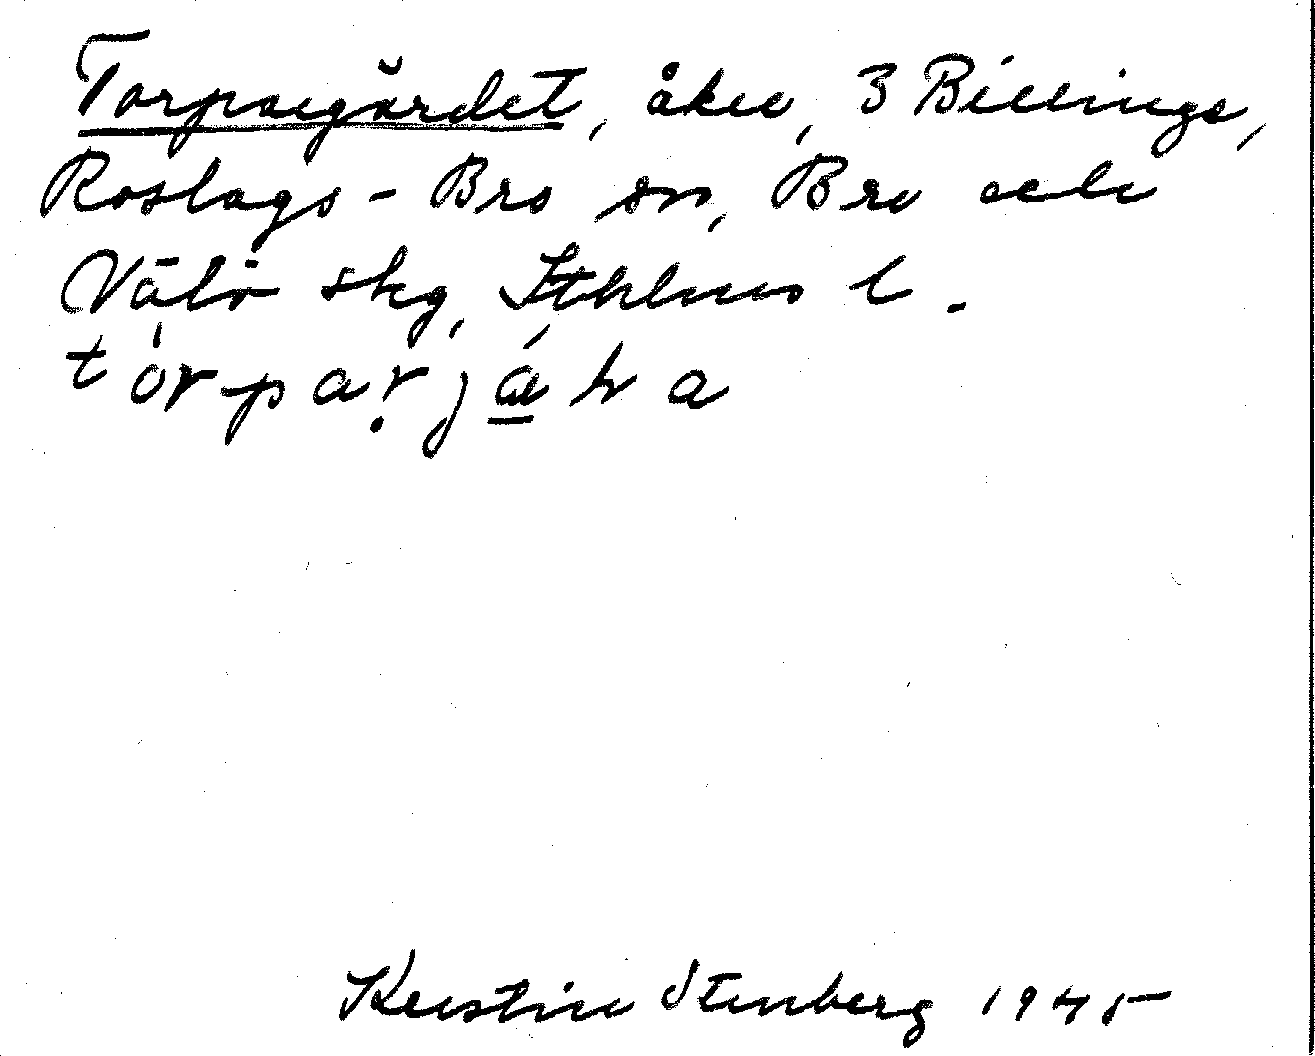 Torpargärdet, åker, 3 Billinge,
Roslags-Bro sn, Bro och
Vätö skg, Sthlms l.
tórparjǽḍa
Kerstin Stenberg 1945